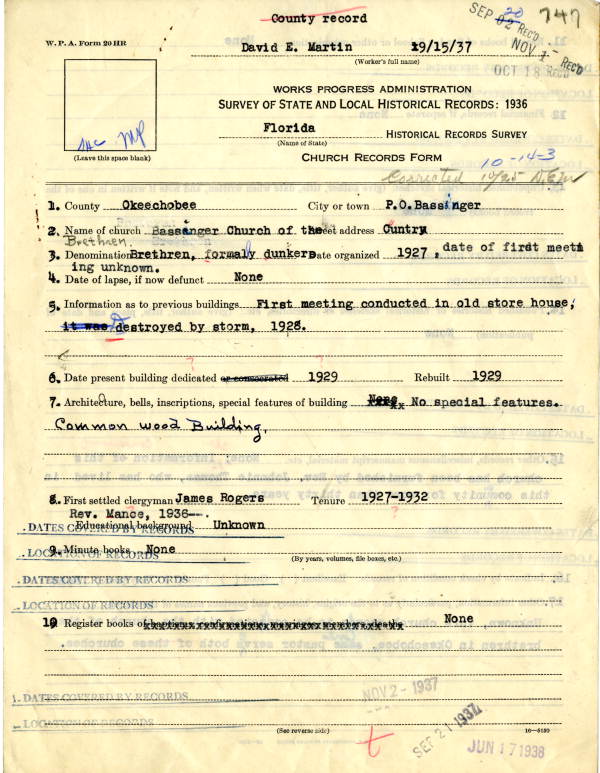 County record
SEP 20 REC'D
747
NOV 1 - REC'D
OCT 18 REC'D
W. P. A. Form 20 HR
David E. Martin 19/15/37
(Worker's full name)
WORKS PROGRESS ADMINISTRATION
SURVEY OF STATE AND LOCAL HISTORICAL RECORDS: 1936
Florida HISTORICAL RECORDS SURVEY
(Name of State)
(Leave this space blank)
CHURCH RECORDS FORM
10-14-3
Corrected 10/25 D.E.M
1. County Okeechobee City or town P.O. Bassinger
2. Name of church Bassanger Church of the Street address Cuntry
Brethren.
3. Denomination Brethren, formaly dunkers Date organized 1927, date of first meet
ing unknown.
4. Date of lapse, if now defunct None
5. Information as to previous buildings First meeting conducted in old store house,
it was Destroyed by storm, 1928.
6. Date present building dedicated or consecrated 1929 Rebuilt 1929
7. Architecture, bells, inscriptions, special features of building None No special features.
Common wood Building.
8. First settled clergyman James Rogers Tenure 1927-1932
Rev. Mance, 1936--.
Educational background Unknown
. DATES COVERED BY RECORDS
9. Minute books None
(By years, volumes, file boxes, etc.)
. LOCATION OF RECORDS
. DATES COVERED BY RECORDS
. LOCATION OF RECORDS
10 Register books of None
. DATES COVERED BY RECORDS
. LOCATION OF RECORDS
NOV 2 - 1937
(See reverse side)
16—5150
SEP 21 1937
JUN 17 1938